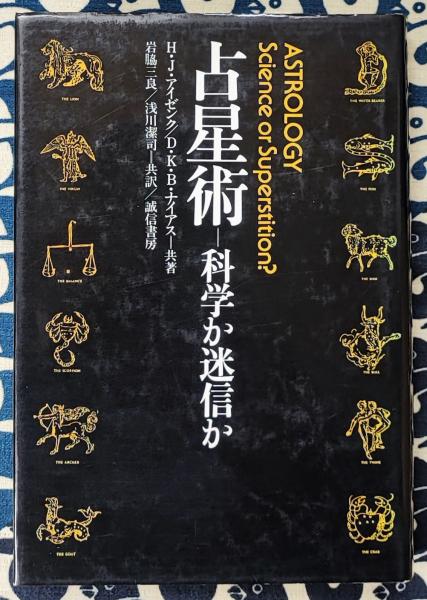 ASTROLOGY
Science or Superstition?
占星術―科学か迷信か
H・J・アイゼンク/D・K・B・ナイアス―共著
岩脇三良/浅川潔司―共訳/誠信書房
THE LION
THE VIRGIN
THE BALANCE
THE SCORPION
THE ARCHER
THE GOAT
THE WATER-BEARER
THE FISH
THE RAM
THE BULL
THE TWINS
THE CRAB